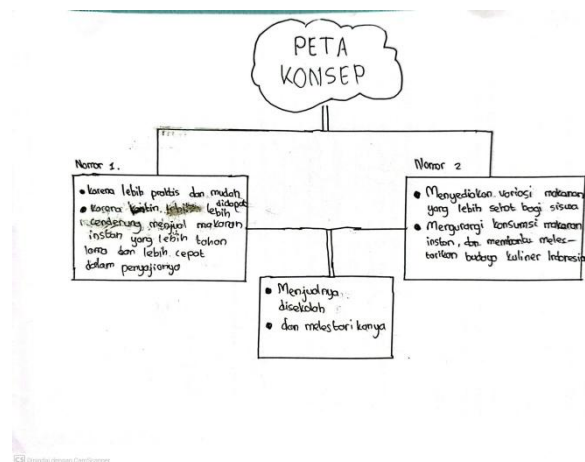 PETA
KONSEP
Nomor 1.
• karena lebih praktis dan mudah
didapat
• karena kantin lebih
cenderung menjual makanan
instan yang lebih tahan
lama dan lebih cepat
dalam penyajianya
Nomor 2
• Menyediakan variasi makanan
yang lebih sehat bagi siswa
• Mengurangi konsumsi makanan
instan, dan membantu meles-
tarikan budaya kuliner Indonesia
• Menjualnya
disekolah
• dan melestarikanya
CS Dipindai dengan CamScanner